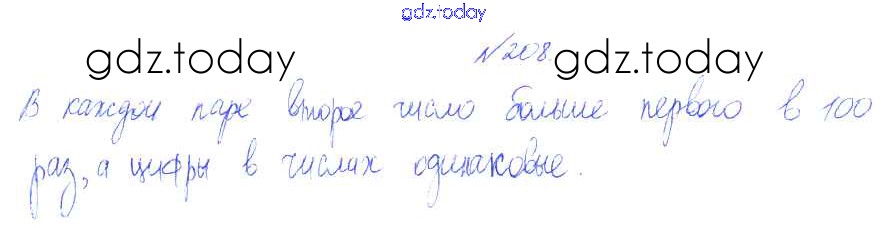 gdz.today
gdz.today №208. gdz.today
В каждой паре второе число больше первого в 100
раз, а цифры в числах одинаковые.